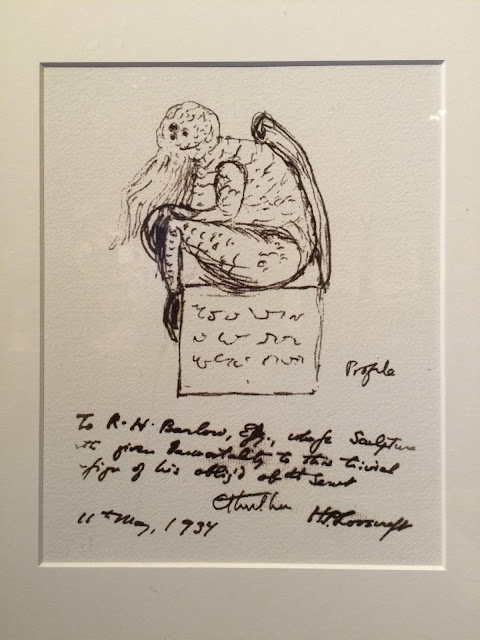 Profile
To R. H. Barlow, Esq., whose Sculpture
hath given Immortality to this trivial
design of his oblig'd obdt Servt
Cthulhu
H.P. Lovecraft
11th May, 1934